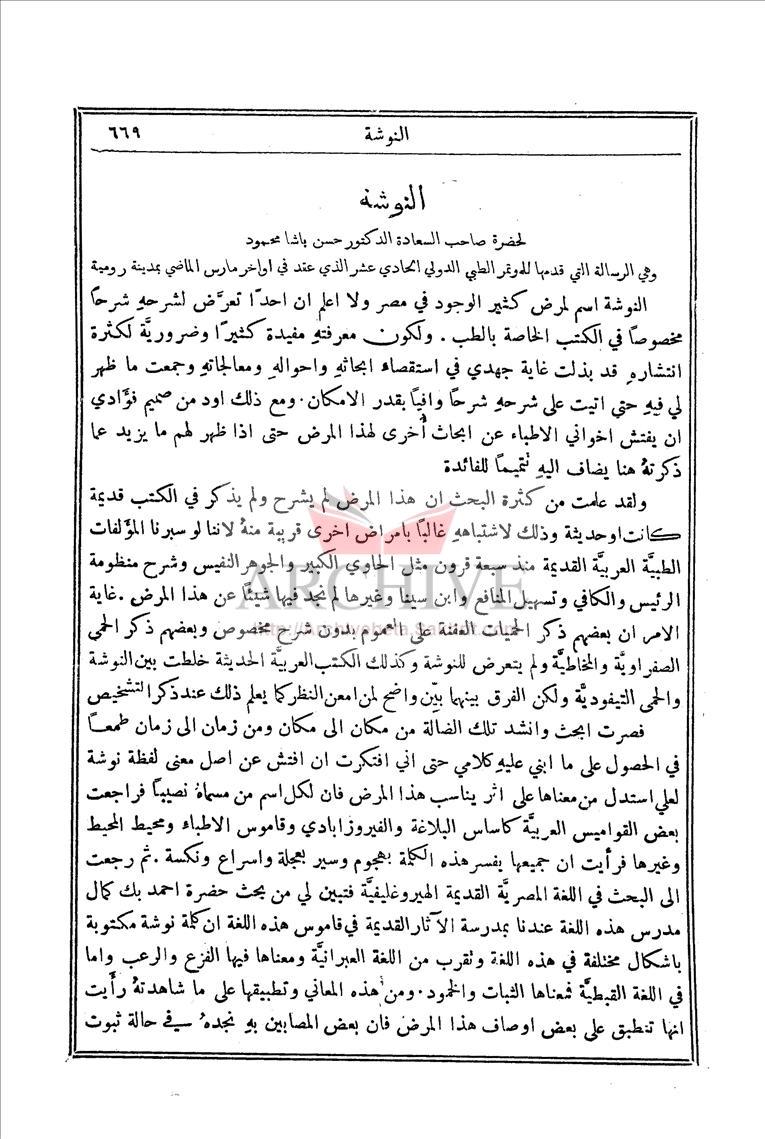 النوشة ٦٦٩
النوشة
لحضرة صاحب السعادة الدكتور حسن باشا محمود
وهي الرسالة التي قدمها للمؤتمر الطبي الدولي الحادي عشر الذي عقد في اواخر مارس الماضي بمدينة رومية
النوشة اسم لمرض كثير الوجود في مصر ولا اعلم ان احدًا تعرَّض لشرحهِ شرحًا
مخصوصًا في الكتب الخاصة بالطب . ولكون معرفتهِ مفيدة كثيرًا وضروريَّة لكثرة
انتشارهِ قد بذلت غاية جهدي في استقصاء ابحاثهِ واحوالهِ ومعالجاتهِ وجمعت ما ظهر
لي فيهِ حتى اتيت على شرحهِ شرحًا وافيًا بقدر الامكان . ومع ذلك اود من صميم فؤادي
ان يفتش اخواني الاطباء عن ابحاث أُخرى لهذا المرض حتى اذا ظهر لهم ما يزيد عما
ذكرتهُ هنا يضاف اليهِ تتميمًا للفائدة
ولقد علمت من كثرة البحث ان هذا المرض لم يشرح ولم يذكر في الكتب قديمة
كانت او حديثة وذلك لاشتباههِ غالبًا بامراض اخرى قريبة منهُ لاننا لو سبرنا المؤَلفات
الطبيَّة العربيَّة القديمة منذ سبعة قرون مثل الحاوي الكبير والجوهر النفيس وشرح منظومة
الرئيس والكافي وتسهيل المنافع وابن سينا وغيرها لم نجد فيها شيئًا عن هذا المرض . غاية
الامر ان بعضهم ذكر الحميات العفنة على العموم بدون شرح مخصوص وبعضهم ذكر الحمى
الصفراويَّة والمخاطيَّة ولم يتعرض للنوشة وكذلك الكتب العربيَّة الحديثة خلطت بين النوشة
والحمى التيفوديَّة ولكن الفرق بينهما بيّن واضح لمن امعن النظر كما يعلم ذلك عند ذكر التشخيص
فصرت ابحث وانشد تلك الضالة من مكان الى مكان ومن زمان الى زمان طمعًا
في الحصول على ما ابني عليهِ كلامي حتى اني افتكرت ان افتش عن اصل معنى لفظة نوشة
لعلي استدل من معناها على اثر يناسب هذا المرض فان لكل اسم من مسماهُ نصيبًا فراجعت
بعض القواميس العربيَّة كاساس البلاغة والفيروزابادي وقاموس الاطباء ومحيط المحيط
وغيرها فرأيت ان جميعها يفسر هذه الكلمة بهجوم وسير بعجلة واسراع ونكسة . ثم رجعت
الى البحث في اللغة المصريَّة القديمة الهيروغليفيَّة فتبين لي من بحث حضرة احمد بك كمال
مدرس هذه اللغة عندنا بمدرسة الآثار القديمة في قاموس هذه اللغة ان كلمة نوشة مكتوبة
باشكال مختلفة في هذه اللغة وتقرب من اللغة العبرانيَّة ومعناها فيها الفزع والرعب واما
في اللغة القبطيَّة فمعناها الثبات والخمود . ومن هذه المعاني وتطبيقها على ما شاهدتهُ رأَيت
انها تنطبق على بعض اوصاف هذا المرض فان بعض المصابين بهِ نجدهُ في حالة ثبوت
ARCHIVE